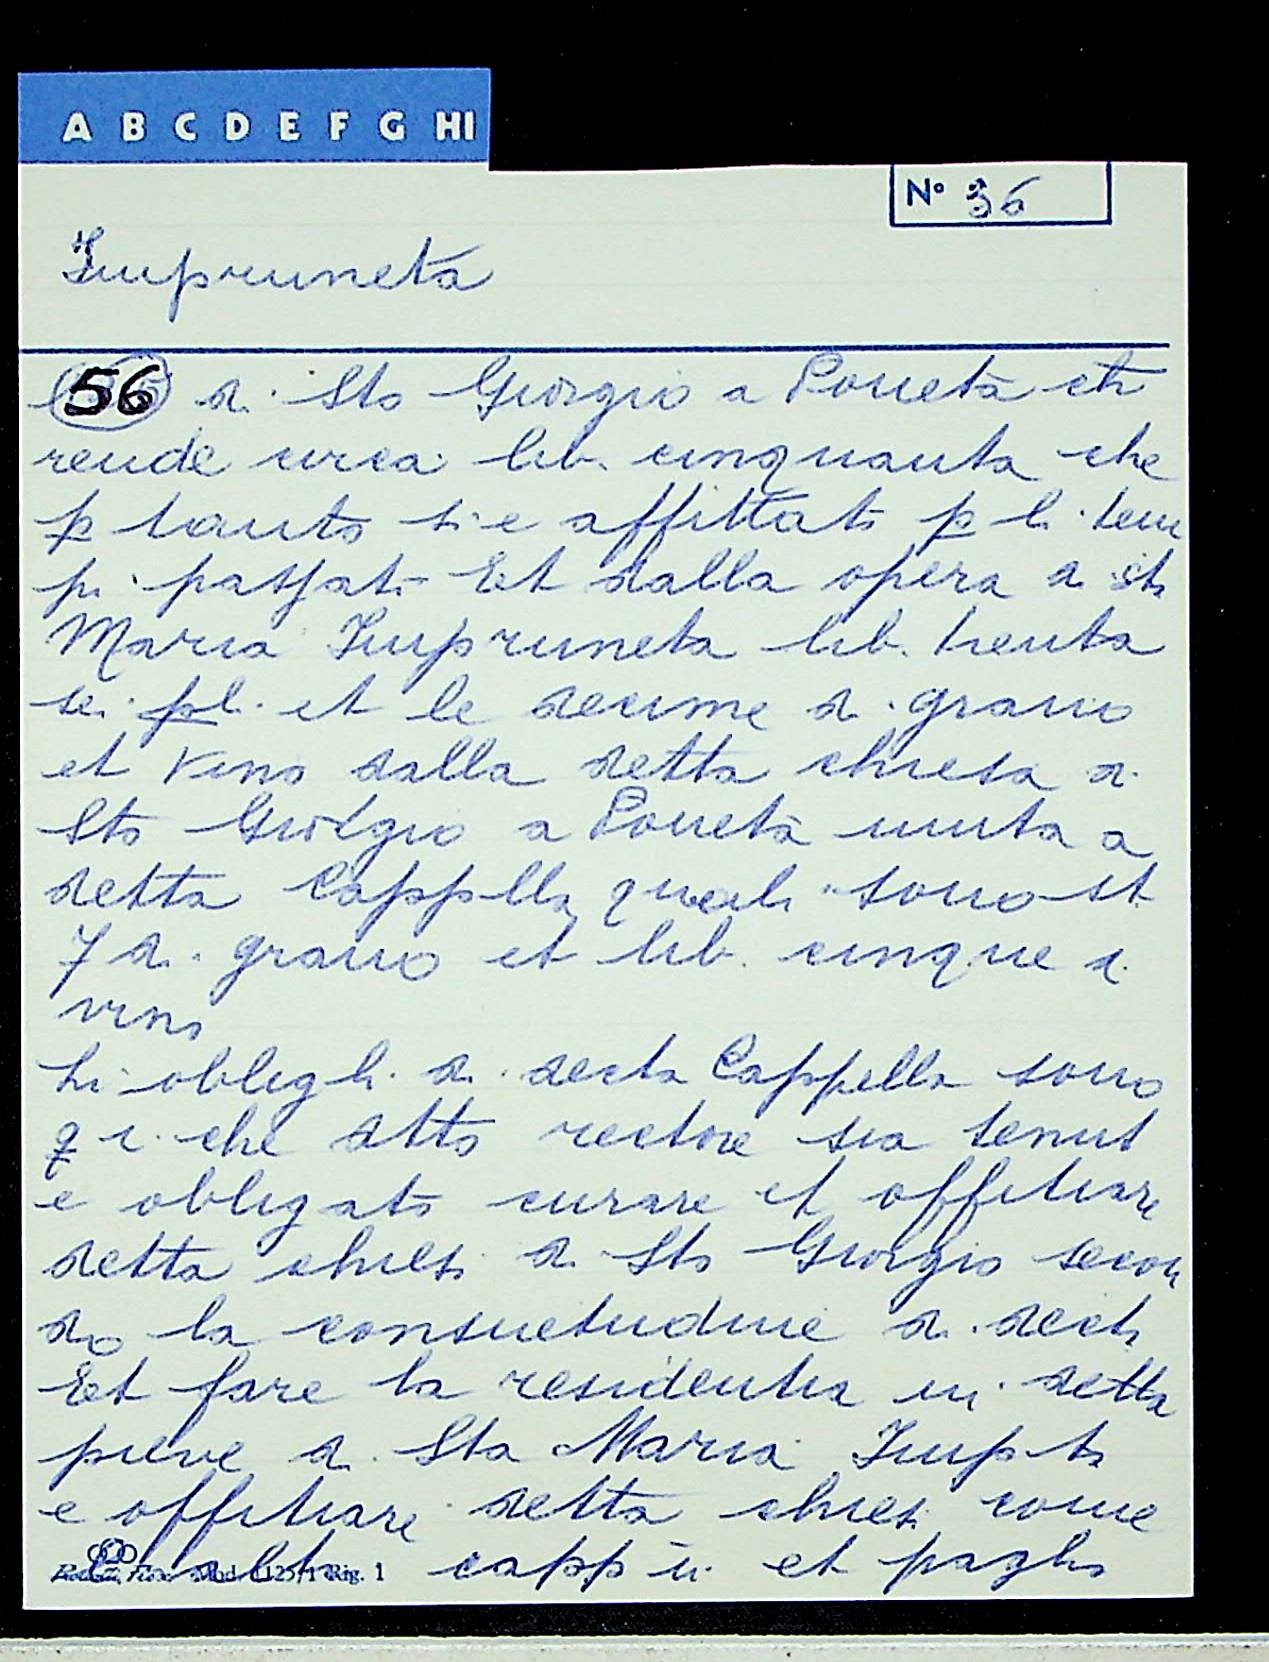 A B C D E F G HI
N° 36
Impruneta
56 di Sto Giorgio a Poneta ch
rende circa lib. cinquanta che
p tanto si e affittato p li tem
pi passati Et dalla opera di sta
Maria Impruneta lib. trenta
sei pl. et le decime di grano
et vino dalla detta chiesa di
Sto Giorgio a Poneta unita a
detta Cappella quali sono st
7 di grano et lib. cinque di
vino
Li oblighi di decta Cappella sono
q i che dtto rectore sia tenut
e obligato curare et offitiare
detta chies di Sto Giorgio secon
do la consuetudine di decta
Et fare la residentia in detta
pieve di Sta Maria Impta
e offitiare detta chies come
altri capp ni et pagha
Mod. 1125/1 Rig. 1